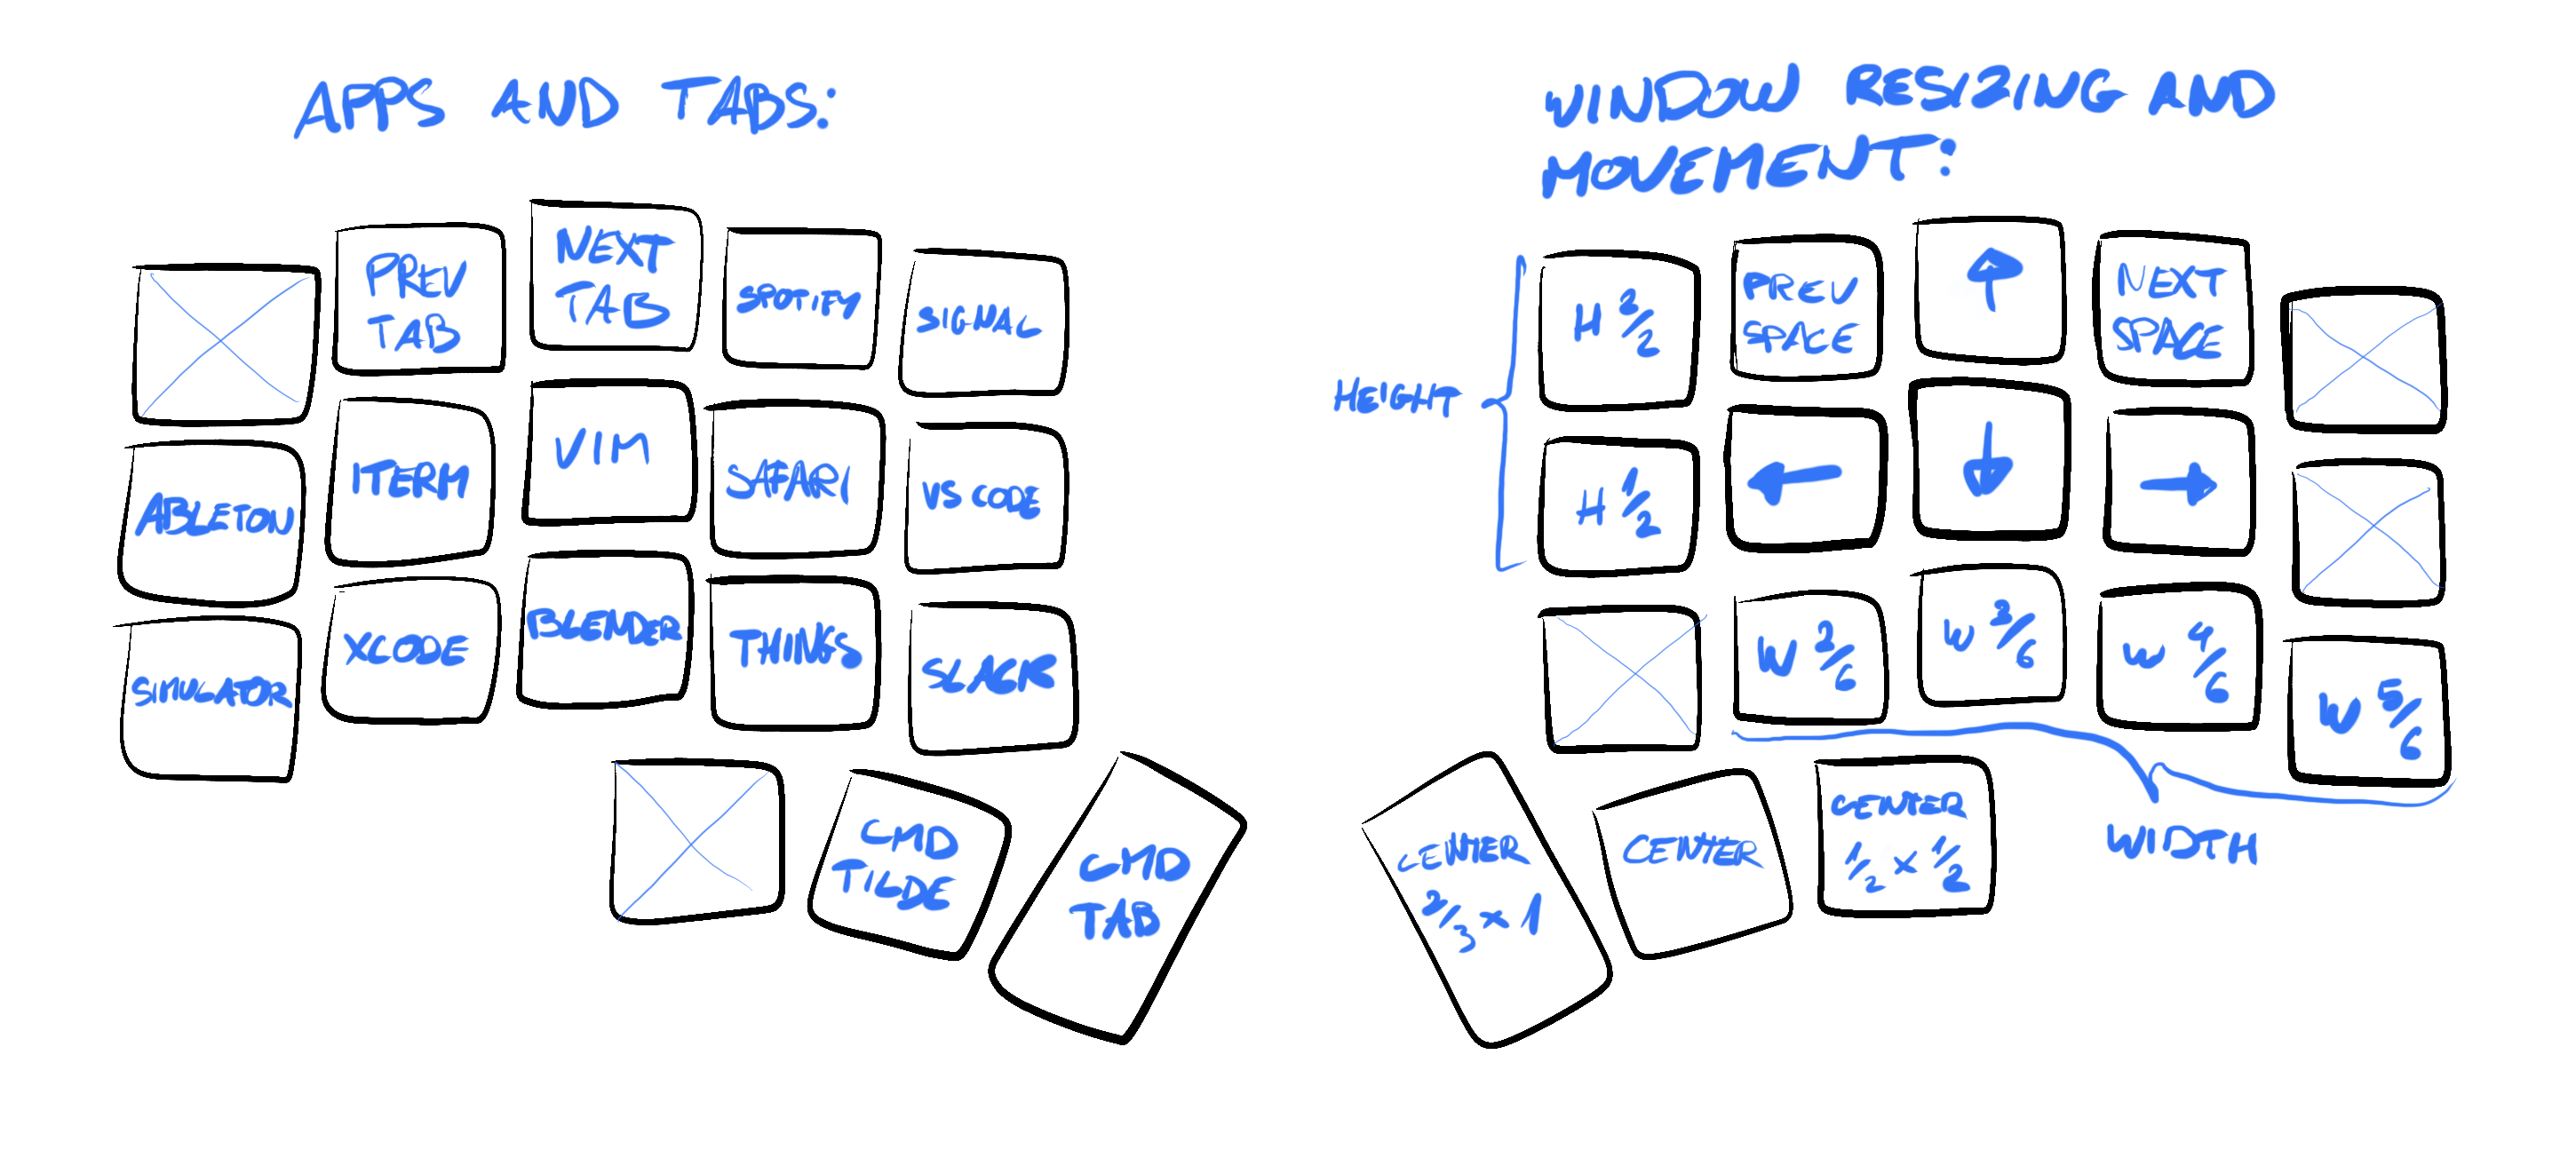 APPS AND TABS:
PREV
TAB
NEXT
TAB
SPOTIFY
SIGNAL
ABLETON
ITERM
VIM
SAFARI
VS CODE
SIMULATOR
XCODE
BLENDER
THINGS
SLACK
CMD
TILDE
CMD
TAB
WINDOW RESIZING AND
MOVEMENT:
HEIGHT
H 2/2
PREV
SPACE
↑
NEXT
SPACE
H 1/2
←
↓
→
W 2/6
W 3/6
W 4/6
W 5/6
WIDTH
CENTER
2/3 × 1
CENTER
CENTER
1/2 × 1/2